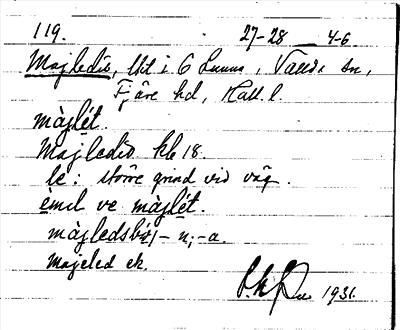 119. 27-28 4-6
Majledić, lht i 6 Lunna, Vallda sn,
Fjäre hd, Hall. l.
màjlét.
Majledid. hk 18.
le: större grind vid väg.
èmil ve màjlét.
màjledsbo/- n;-a.
Majeled ek.
1931.